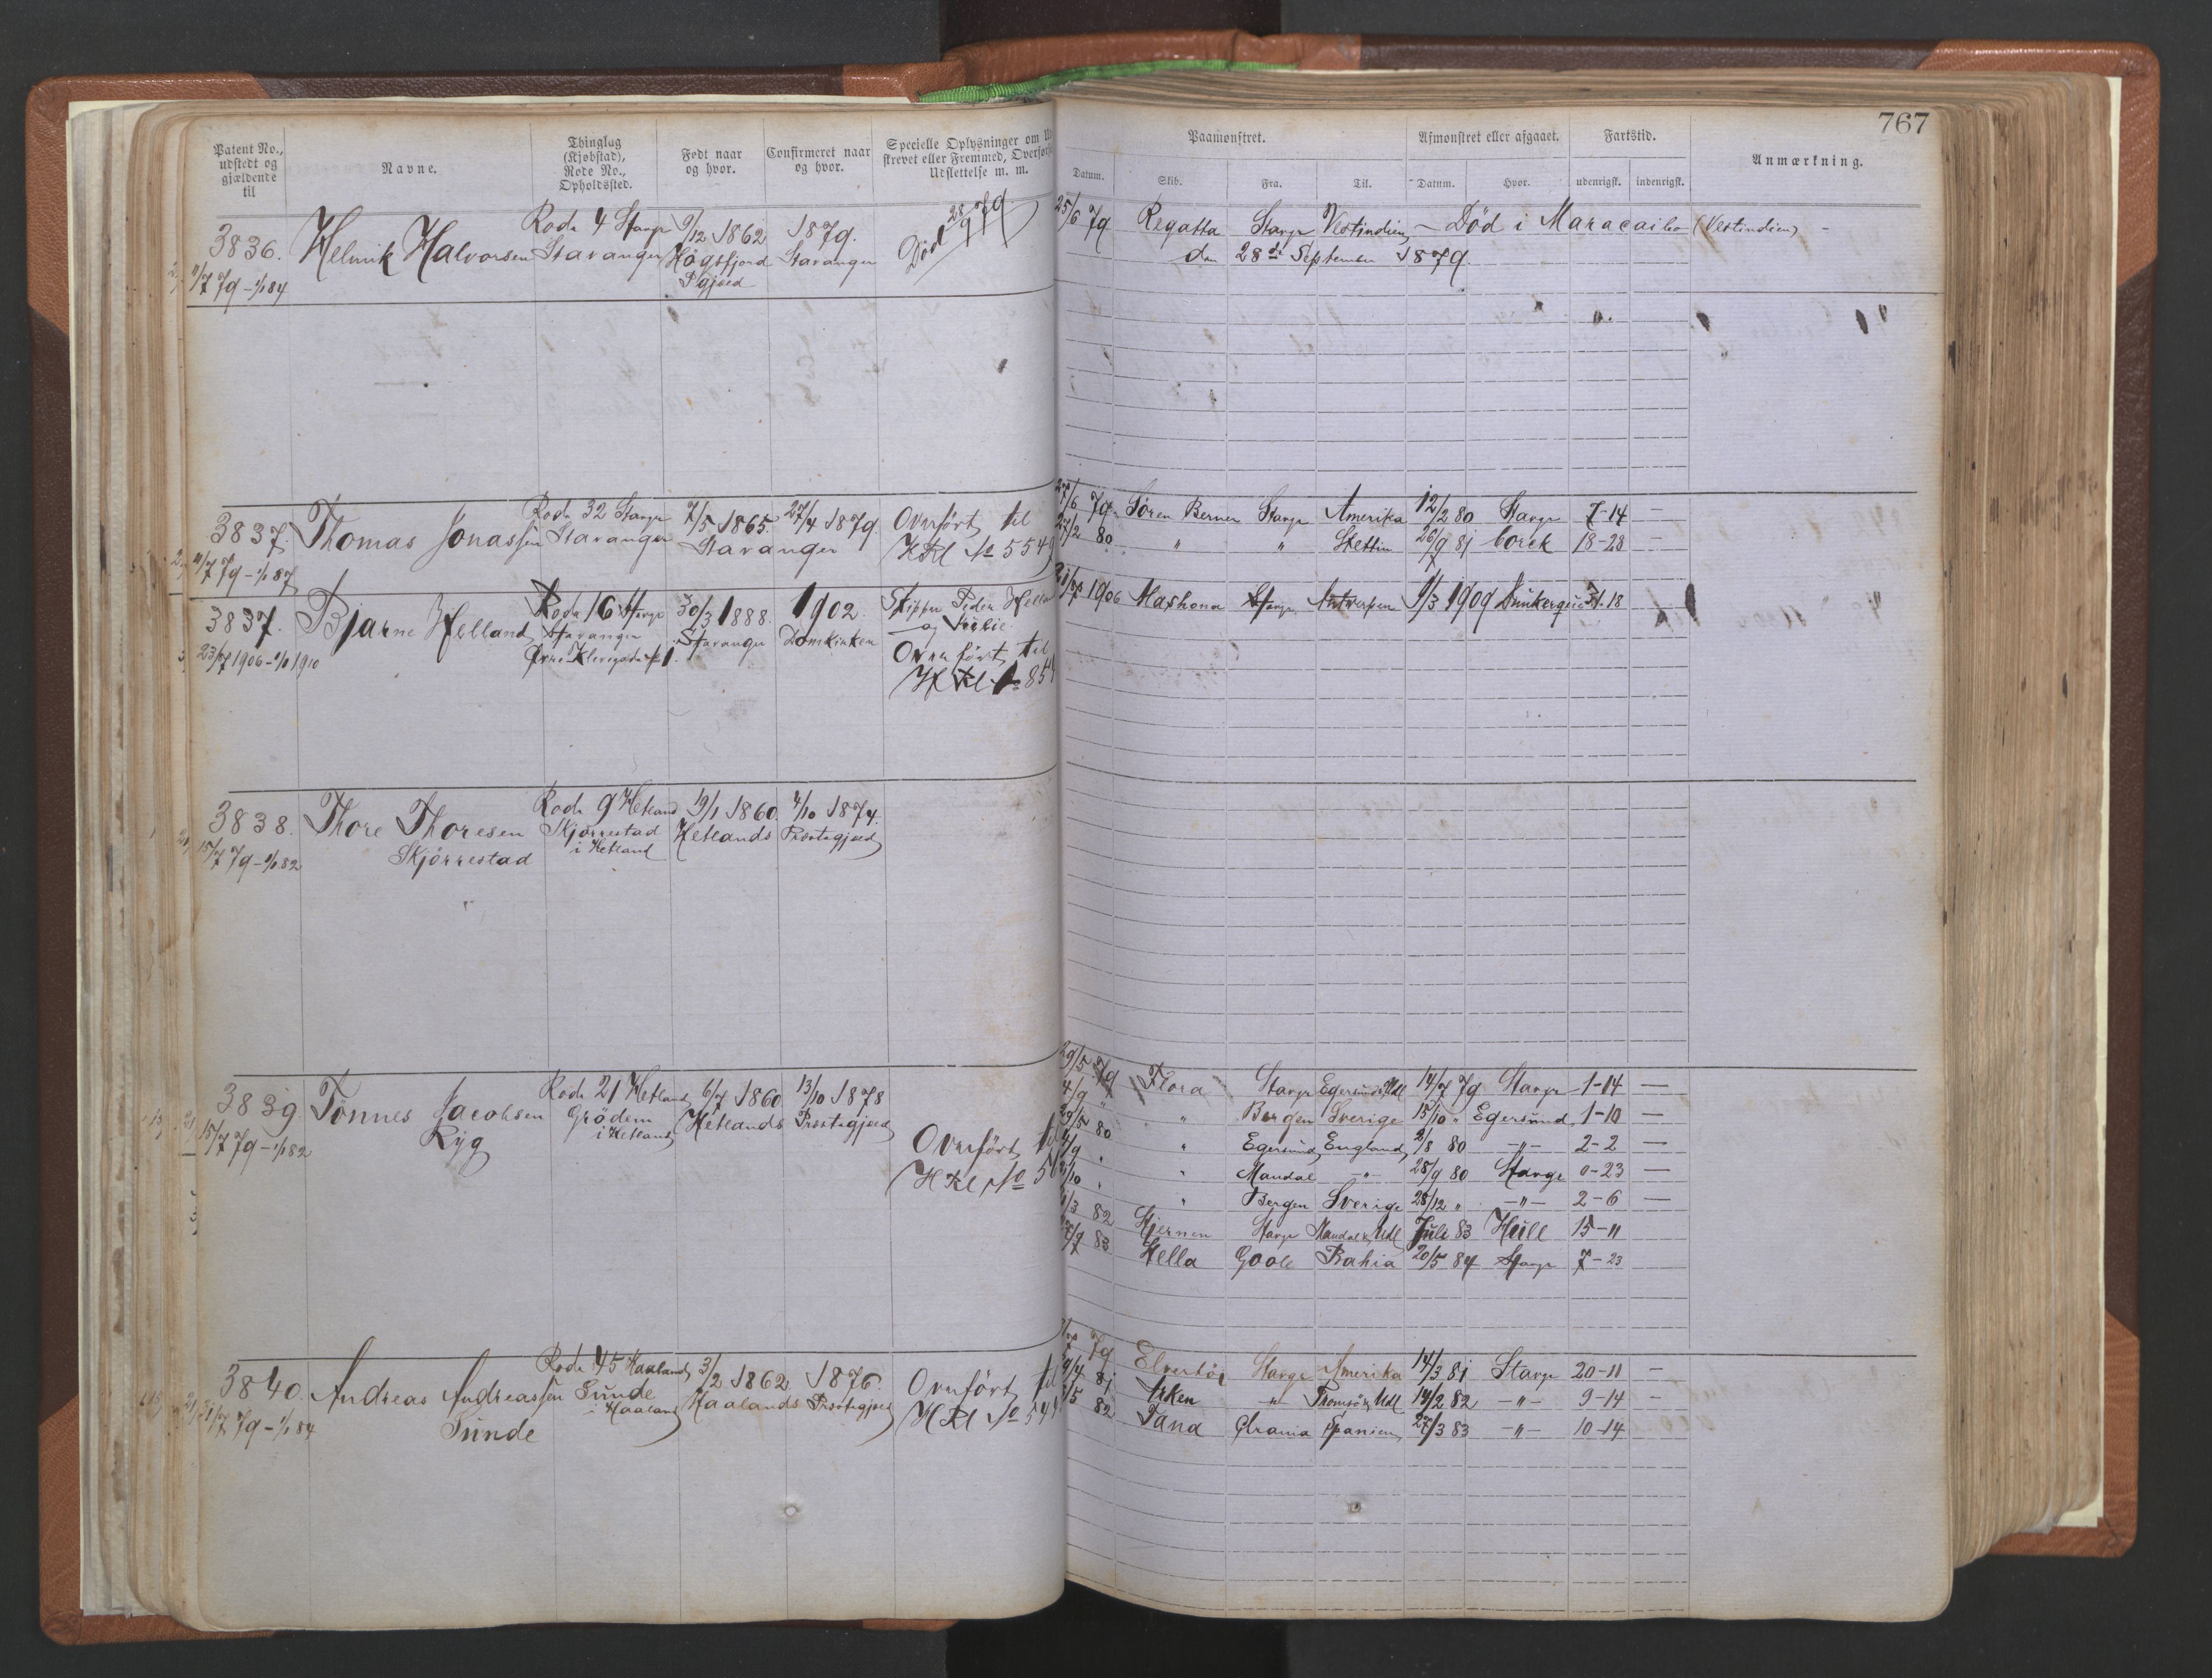 767
Patent No., udstedt og gjældende til
Navne.
Thinglag (Kjøbstad), Rode No., Opholdssted.
Født naar og hvor.
Confirmeret naar og hvor.
Specielle Oplysninger om
skrevet eller Fremmed,
Udslettelse m. m.
Paamønstret.
Afmønstret eller afgaaet.
Fartstid.
Anmærkning.
Datum.
Skib.
Fra.
Til.
Datum.
Hvor.
udenrigsk.
indenrigsk.
3836.
11/7 79 - 1/1 84
Helmik Halvorsen
Rode 4 Stavgr
Stavanger
9/12 1862
Høgsfjord
Pgjæld
1879.
Stavanger
Død 28/9 79.
25/6 79 Regatta Stavgr Vestindien - Død i Maracaibo (Vestindien) -
den 28de September 1879.
3837.
11/7 79 - 1/1 87
Thomas Jonassen
Rode 32 Stavgr
Stavanger
7/5 1865. 27/4 1879.
Stavanger
Overført til
HRl No 554
27/6 79 Søren Berner Stavgr Amerika 12/2 80 Stavgr 7-14 —
27/2 80 " " Stettin 26/9 81 Corck 18-28 —
3837.
23/7 1906 - 1/1 1910
Bjarne Helland
Rode 16 Stavgr
Stavanger
30/3 1888.
Stavanger
1902.
Domkirken
Skipper Peder
og
Overført til
1906 Mashona Stavgr Antwerpen 1/3 1909 Dünkerque
3838.
15/7 79 - 1/1 82
Thore Thoresen
Skjørrestad
Rode 9 Hetland
Skjørrestad
i Hetland
19/1 1860. 4/10 1874.
Hetlands Præstegjæld
3839
15/7 79 - 1/1 82
Tønnes Jacobsen
Ryg
Rode 21 Hetland
Grødem
i Hetland
6/7 1860 13/10 1878
Hetlands Præstegjæld
Overført til
HRl No
29/5 79 Flora Stavgr Egersund, Udl 14/7 79 Stavgr 1-14 —
4/9 " " Bergen Sverige 15/10 " Egersund 1-10 —
29/5 80 " Egersund England 2/8 80 -"- 2-2 —
4/9 " " Mandal -"- 28/9 80 Stavgr 0-23 —
" " Bergen Sverige 28/12 " -"- 2-6 —
82 Stjernen Stavgr Mandal & Udl Juli 83 Hull 15-11
83 Hella Goole Bahia 20/5 84 Stavgr 7-23
3840.
79 - 1/1 84
Andreas Andreassen
Sunde
Rode 45 Haaland
Sunde
i Haaland
3/2 1862 1876.
Haalands Præstegjæld
Overført til
HRl No
79 Stavgr Amerika 14/3 81 Stavgr 20-11 —
81 " Tromsø & Udl 14/2 82 -"- 9-14 -
82 Spanien 27/3 83 -"- 10-14